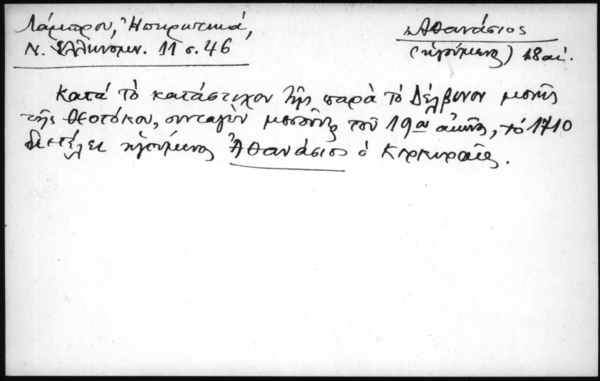 Λάμπρου, Ἠπειρωτικά,
Ν. Ἑλληνομν. 11 σ. 46
Ἀθανάσιος
(ἡγούμενος) 18 αἰ.
Κατά τὸ κατάστιχον τῆς παρὰ τὸ Δέλβινον μονῆς
τῆς Θεοτόκου, συνταγὲν μεσοῦντος τοῦ 19ου αἰῶνος, τὸ 1710
διετέλει ἡγούμενος Ἀθανάσιος ὁ Κερκυραῖος.